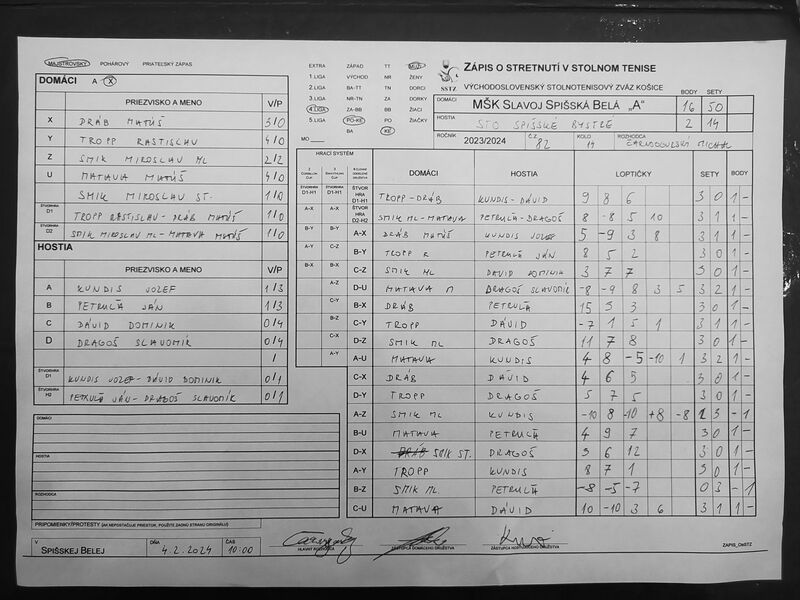 MAJSTROVSKÝ POHÁROVÝ PRIATEĽSKÝ ZÁPAS
DOMÁCI A X
PRIEZVISKO A MENO V/P
X DRÁB MATÚŠ 3/0
Y TROPP RASTISLAV 4/0
Z SMIK MIROSLAV ML 2/2
U MATAVA MATÚŠ 4/0
SMIK MIROSLAV ST. 1/0
ŠTVORHRA D1 TROPP RASTISLAV - DRÁB MATÚŠ 1/0
ŠTVORHRA D2 SMIK MIROSLAV ML - MATAVA MATÚŠ 1/0
HOSTIA
PRIEZVISKO A MENO V/P
A KUNDIS JOZEF 1/3
B PETRUĽA JÁN 1/3
C DÁVID DOMINIK 0/4
D DRAGOŠ SLAVOMÍR 0/4
/
ŠTVORHRA D1 KUNDIS JOZEF - DÁVID DOMINIK 0/1
ŠTVORHRA H2 PETRUĽA JÁN - DRAGOŠ SLAVOMÍR 0/1
DOMÁCI
HOSTIA
ROZHODCA
PRIPOMIENKY/PROTESTY (AK NEPOSTAČUJE PRIESTOR, POUŽITE ZADNÚ STRANU ORIGINÁLU)
V SPIŠSKEJ BELEJ DŇA 4.2.2024 ČAS 10:00
EXTRA ZÁPAD TT MUŽI
1.LIGA VÝCHOD NR ŽENY
2.LIGA BA-TT TN DORCI
3.LIGA NR-TN ZA DORKY
4.LIGA ZA-BB BB ŽIACI
5.LIGA PO-KE PO ŽIAČKY
BA KE
MO
SSTZ
ZÁPIS O STRETNUTÍ V STOLNOM TENISE
VÝCHODOSLOVENSKÝ STOLNOTENISOVÝ ZVÄZ KOŠICE
BODY SETY
DOMÁCI MŠK SLAVOJ SPIŠSKÁ BELÁ „A“ 16 50
HOSTIA STO SPIŠSKÉ BYSTRÉ 2 14
ROČNÍK 2023/2024 Č.Z. 82 KOLO 14 ROZHODCA ČARNOGURSKÝ MICHAL
HRACÍ SYSTÉM
DOMÁCI HOSTIA LOPTIČKY SETY BODY
ŠTVORHRA D1-H1 ŠTVORHRA D1-H1 ŠTVOR HRA D1-H1 TROPP - DRÁB KUNDIS - DÁVID 9 8 6 3 0 1 -
A-X A-X ŠTVOR HRA D2-H2 SMIK ML - MATAVA PETRUĽA - DRAGOŠ 8 -8 5 10 3 1 1 -
B-Y B-Y A-X DRÁB MATÚŠ KUNDIS JOZEF 5 -9 3 8 3 1 1 -
A-Y C-Z B-Y TROPP R PETRUĽA JÁN 8 5 2 3 0 1 -
B-X B-X C-Z SMIK ML DÁVID DOMINIK 3 7 7 3 0 1 -
A-Z D-U MATAVA M DRAGOŠ SLAVOMÍR -8 -9 8 3 5 3 2 1 -
C-Y B-X DRÁB PETRUĽA 15 5 3 3 0 1 -
B-Z C-Y TROPP DÁVID -7 1 5 1 3 1 1 -
C-X D-Z SMIK ML DRAGOŠ 11 7 8 3 0 1 -
A-Y A-U MATAVA KUNDIS 4 8 -5 -10 1 3 2 1 -
C-X DRÁB DÁVID 4 6 5 3 0 1 -
D-Y TROPP DRAGOŠ 5 7 5 3 0 1 -
A-Z SMIK ML KUNDIS -10 8 -10 +8 -8 3 - 1
B-U MATAVA PETRUĽA 4 9 7 3 0 1 -
D-X DRÁB SMIK ST. DRAGOŠ 3 6 12 3 0 1 -
A-Y TROPP KUNDIS 8 7 1 3 0 1 -
B-Z SMIK ML PETRUĽA -8 -5 -7 0 3 - 1
C-U MATAVA DÁVID 10 -10 3 6 3 1 1 -
HLAVNÝ ROZHODCA ZÁSTUPCA DOMÁCEHO DRUŽSTVA ZÁSTUPCA HOSŤUJÚCEHO DRUŽSTVA
ZÁPIS_OSSTZ